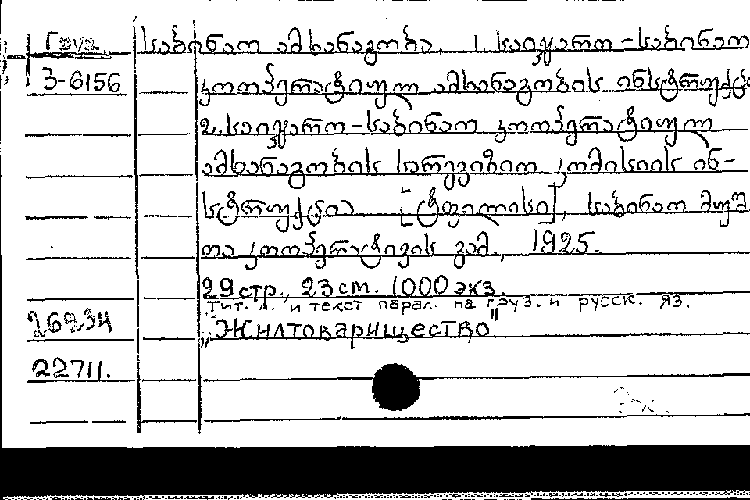 Груз. საბინაო ამხანაგობა. 1. საიჯარო-საბინაო
3-6156 კოოპერატიულ ამხანაგობის ინსტრუქცი
2. საიჯარო-საბინაო კოოპერატიულ
ამხანაგობის სარევიზიო კომისიის ინ-
სტრუქცია [ტფილისი], საბინაო მუშ
თა კოოპერატივის გამ., 1925.
29 стр., 23 см. 1000 экз.
Тит. л. и текст парал. на груз. и русск. яз.
26234 "Жилтоварищество"
22711.